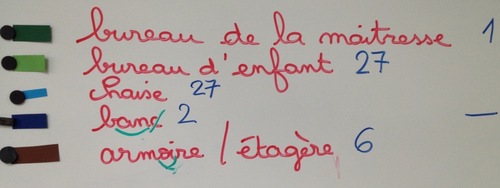 bureau de la maîtresse 1
bureau d'enfant 27
chaise 27
banc 2
armoire / étagère 6